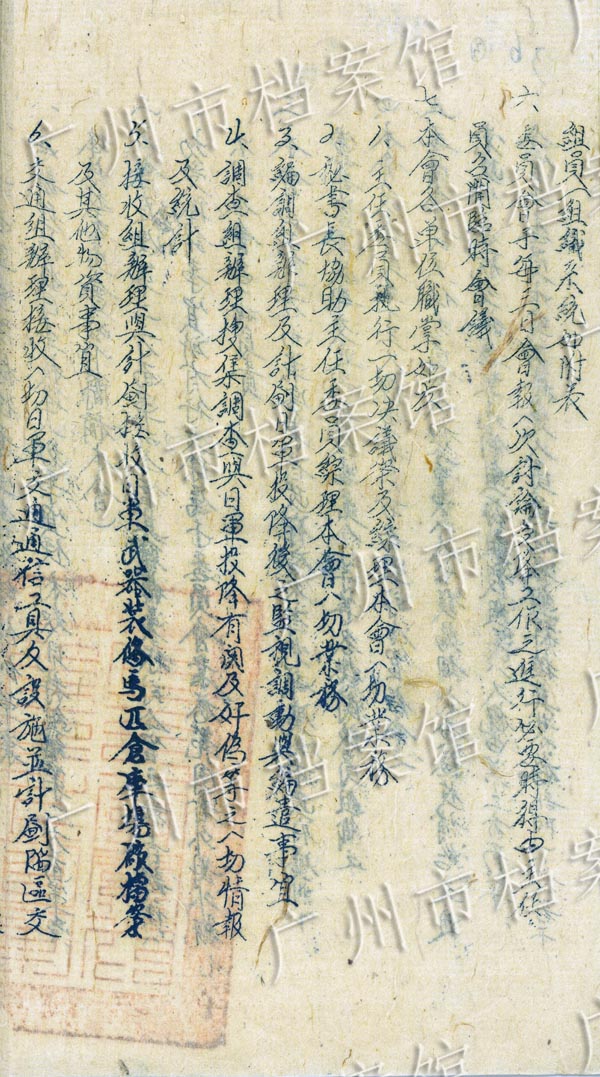 組員(組織系統如附表
六 委員會于每三日會報一次討論具体工作之進行必要時得由主任
員召開臨時會議
七 本會各單位職掌如次
1、主任委員執行一切决議案及綜理本會一切業務
2、秘書長協助主任委員綜理本會一切業務
3、編調組辦理及計劃日軍投降後之監視調動與編遣事宜
4、調查組辦理搜集調查與日軍投降有関及奸偽等之一切情報
及統計
5、接收組辦理與計劃接收日軍武器裝備馬匹倉庫場廠檔案
及其他物資事宜
6、交通組辦理接收一切日軍交通通信工具及設施並計劃陷區交
广州市档案馆